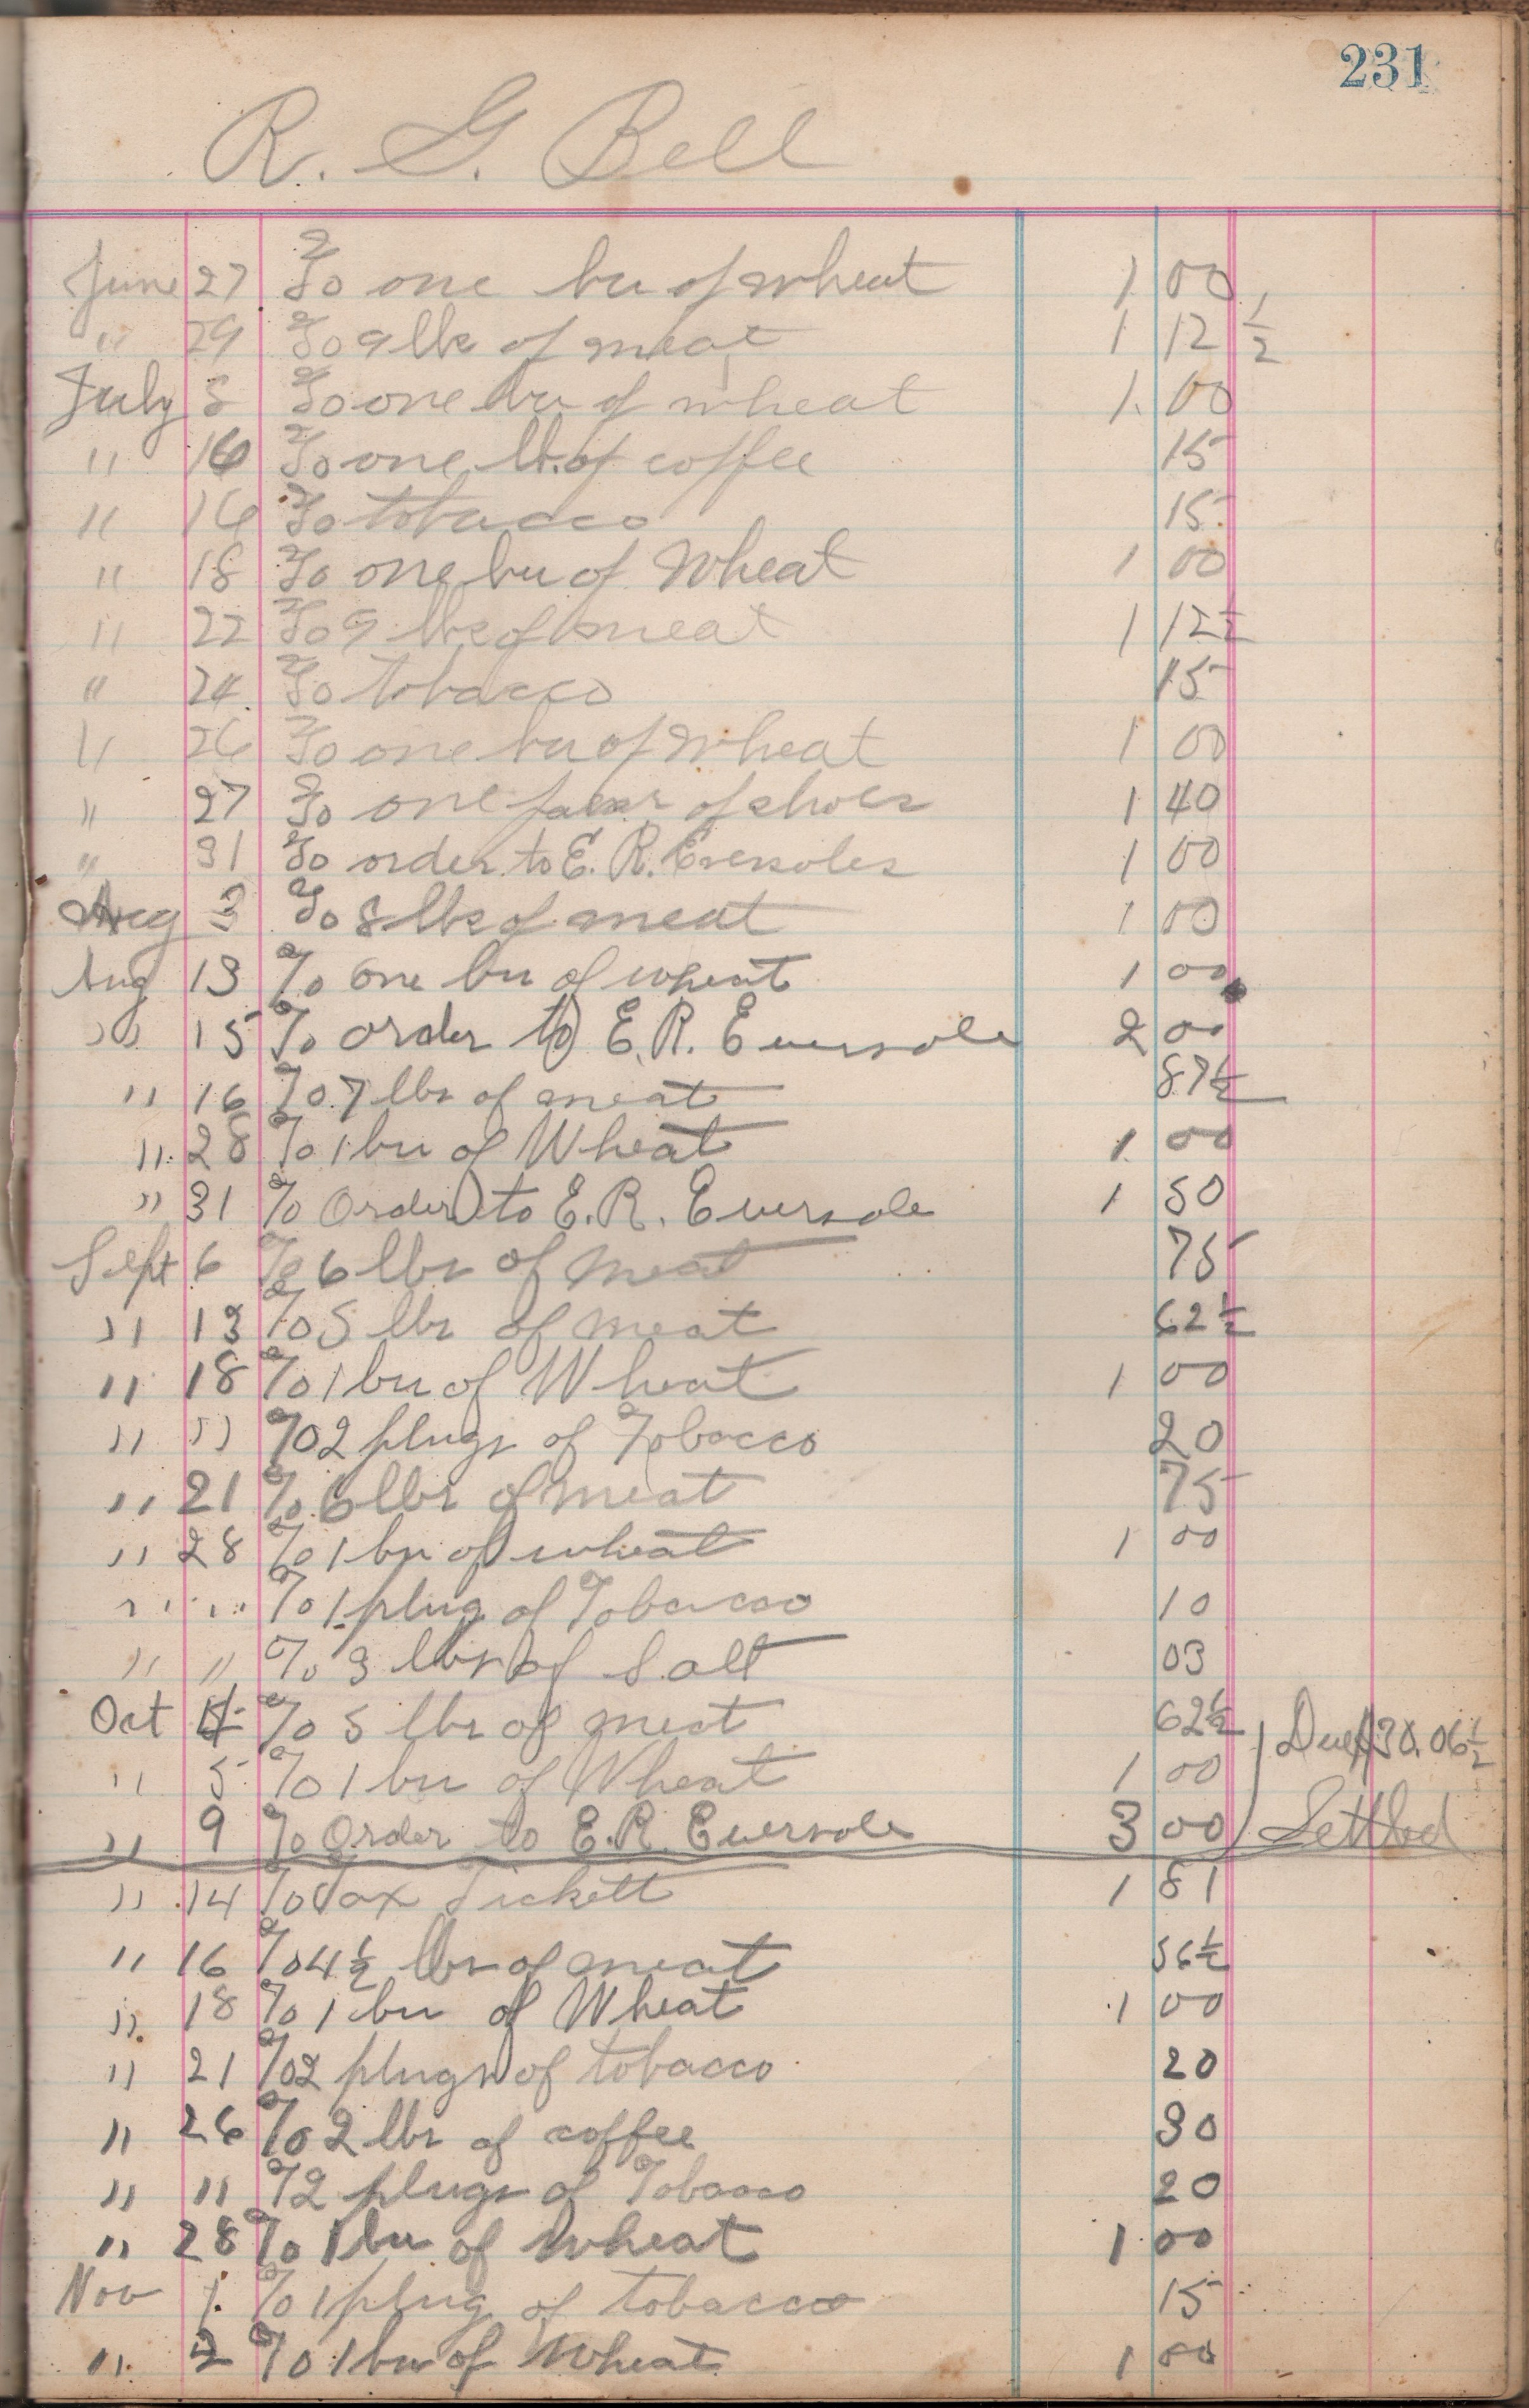 231
R. G. Bell
June 27 To one bu of wheat 1 00
" 29 To 9 lbs of meat 1 12 1/2
July 8 To one bu of wheat 1.00
" 16 To one lb. of coffee 15
" 16 To tobacco 15
" 18 To one bu of Wheat 1 00
" 22 To 9 lbs of meat 1 12 1/2
" 24 To tobacco 15
" 26 To one bu of wheat 1 00
" 27 To one paar of shoes 1 40
" 31 To order to E. R. Eversoles 1 00
Aug 3 To 8 lbs of meat 1 00
Aug 13 To one bu of wheat 1 00
" 15 To order to E. R. Eversole 2 00
" 16 To 7 lbs of meat 87 1/2
" 28 To 1 bu of Wheat 1 00
" 31 To Order to E. R. Eversole 1 50
Sept 6 To 6 lbs of meat 75
" 13 To 5 lbs of meat 62 1/2
" 18 To 1 bu of Wheat 1 00
" " To 2 plugs of Tobacco 20
" 21 To 6 lbs of meat 75
" 28 To 1 bu of wheat 1 00
" " To 1 plug of Tobacco 10
" " To 3 lbs of Salt 03
Oct 4 To 5 lbs of meat 62 1/2
" 5 To 1 bu of Wheat 1 00 Due $30.06 1/2
" 9 To Order to E. R. Eversole 3 00 Settled
" 14 To Tax Tickett 1 81
" 16 To 4 1/2 lbs of meat 56 1/2
" 18 To 1 bu of Wheat 1 00
" 21 To 2 plugs of tobacco 20
" 26 To 2 lbs of coffee 30
" " T 2 plugs of Tobacco 20
" 28 To 1 bu of wheat 1 00
Nov 1. To 1 plug of tobacco 15
" 2 To 1 bu of Wheat 1 00